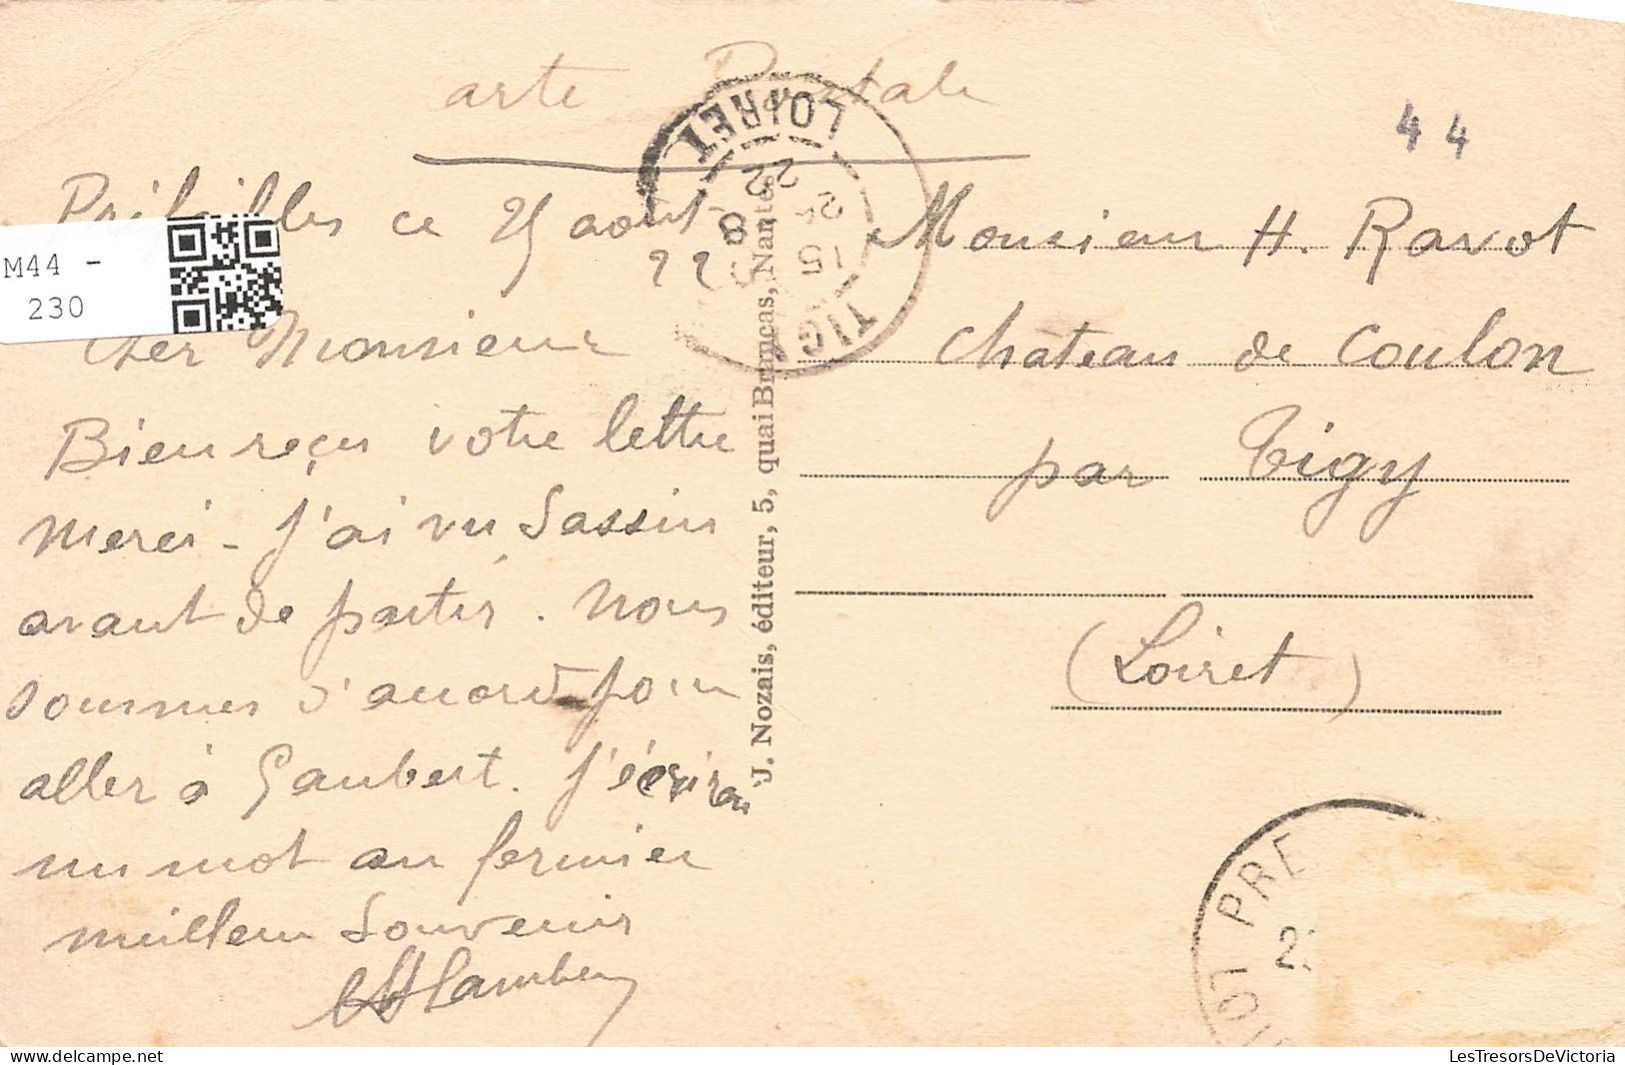 arte Postale
44
Préfailles ce 21 août
22
M44 -
230
Cher Monsieur
Bien reçu votre lettre
merci - J'ai vu Sassin
avant de partir. Nous
sommes d'accord pour
aller à Gaubert. J'écrirai
un mot au fermier
meilleur Souvenir
J. Nozais, éditeur, 5, quai Brancas, Nantes
LOIRET
TIGY
22
8
15
Monsieur H. Ravot
Château de Coulon
par Tigy
(Loiret)
PRE
LesTresorsDeVictoria